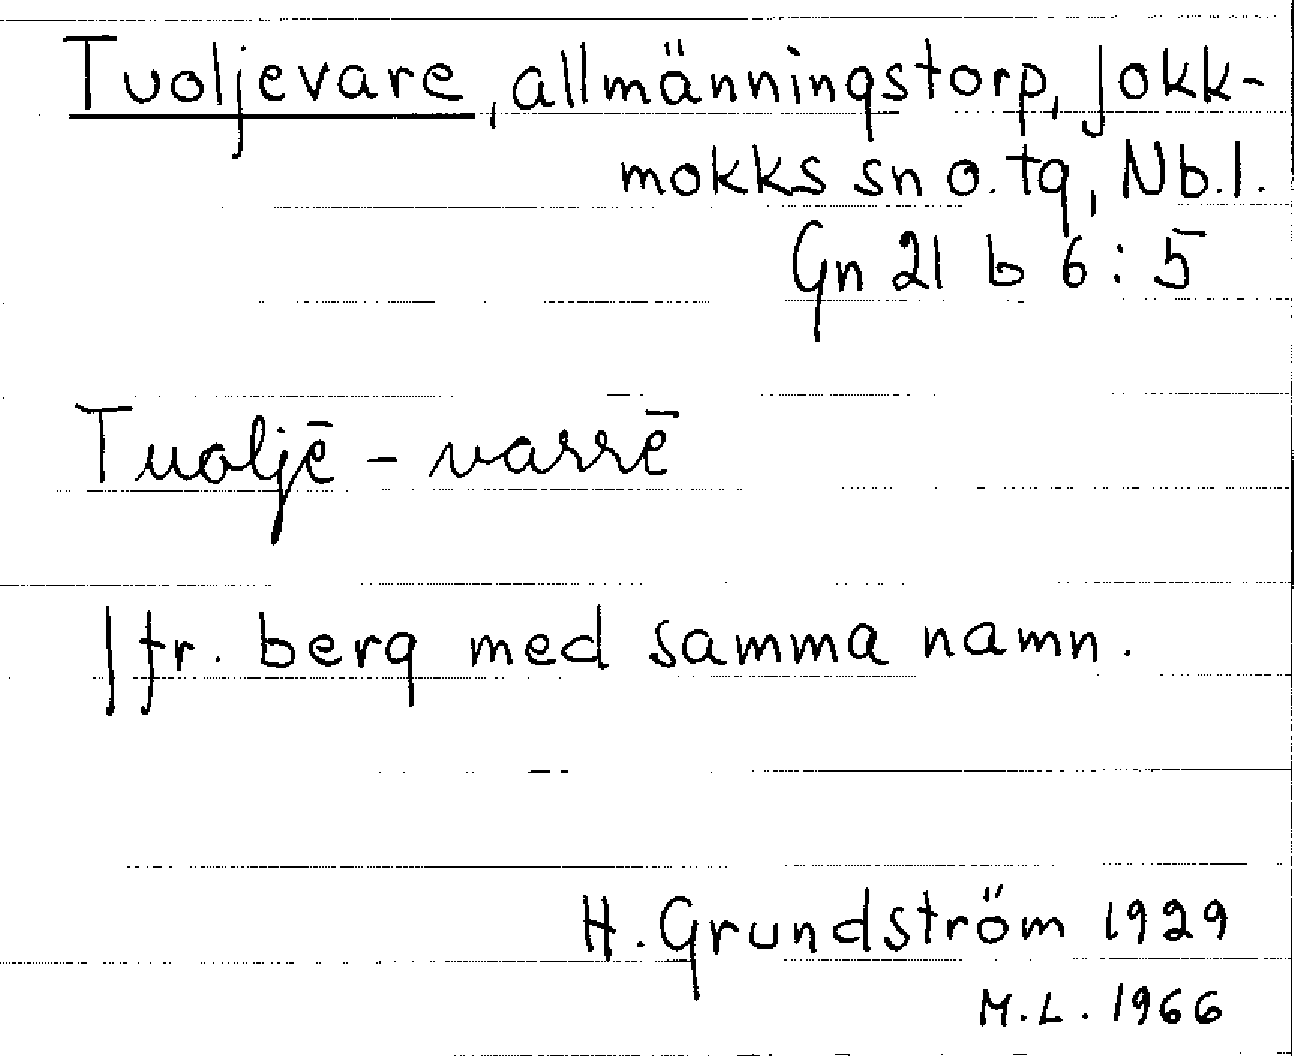 Tuoljevare, allmänningstorp, Jokk-
mokks sn o. tg, Nb.l.
Gn 21 b 6:5
Tuoljē - varrē
Jfr. berg med samma namn.
H. Grundström 1929
M.L. 1966